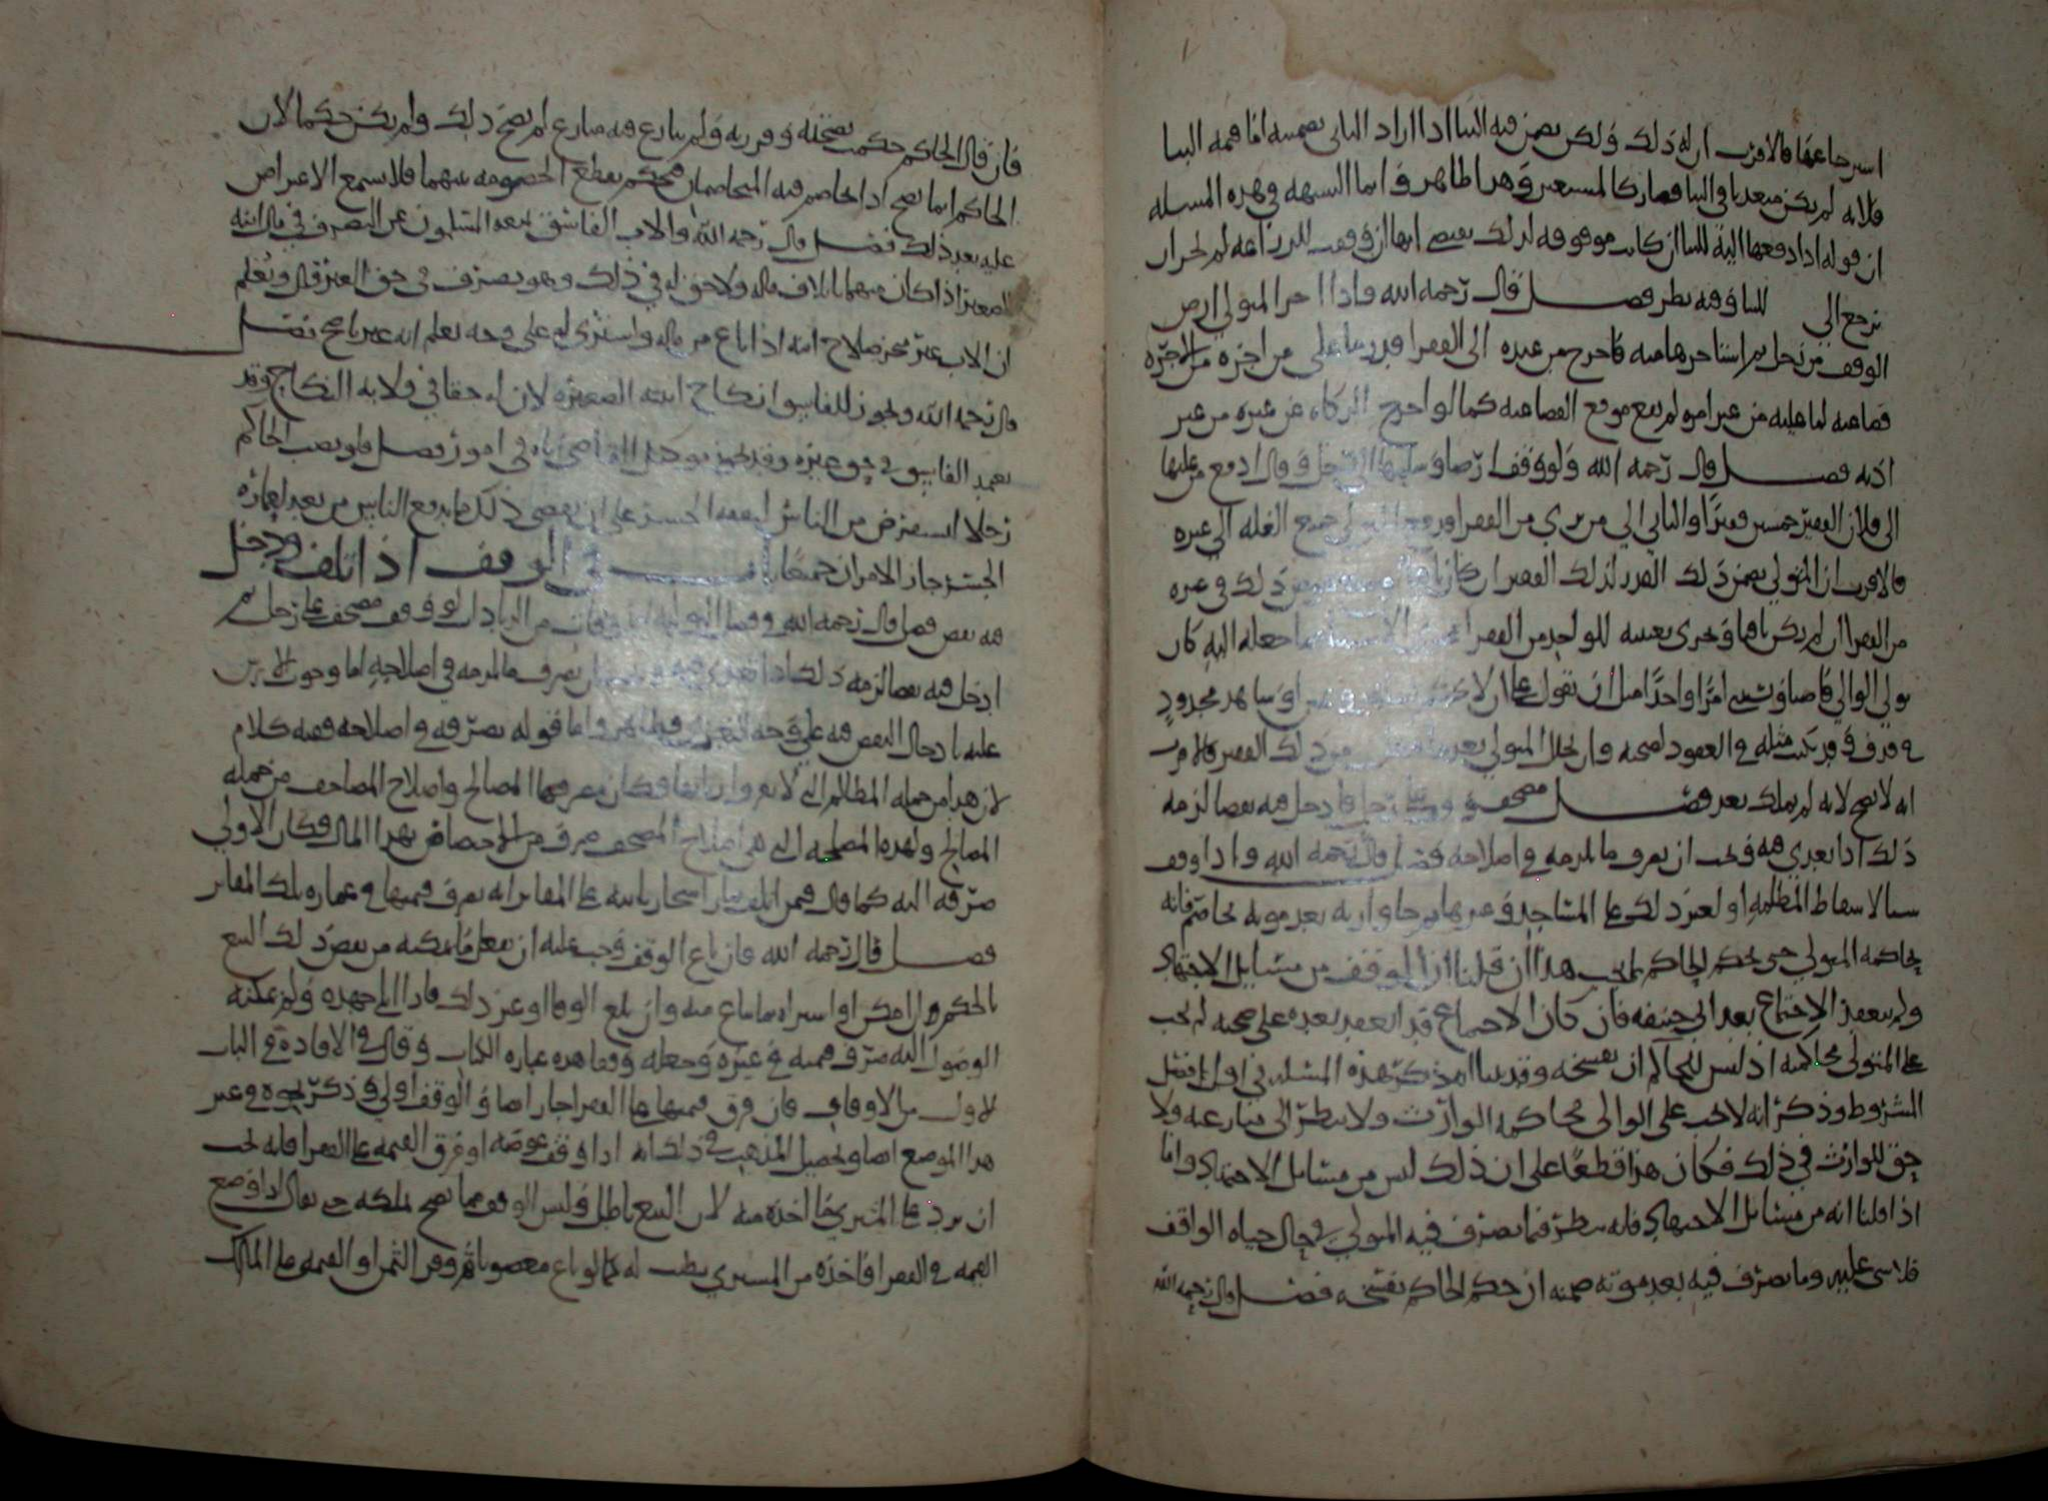 استرجاعها فالاقرب ان له ذلك ولكن يضمن قيمة البنا اذا اراد الباني تضمينه اما قيمة البنا
فلانه لم يكن متعديا في البنا فصار كالمستعير وهذا ظاهر وانما الشبهة في هذه المسلة
ان قوله اذا دفعها اليه للبنا ان كانت موقوفة لذلك
يرجع الى للبنا وفيه نظر فصل قال رحمه الله واذا اجر المتولي ارض
الوقف من رجل ثم استاجرها منه فاخرج من عنده الى الفقرا قدر ما على من اجره من الاجرة
قضا عنه لما عليه من غير امره لم يقع موقع القضا عنه كما لو اخرج الزكاة عن غيره من غير
اذنه فصل قال رحمه الله ولو وقف ارضا وسلمها الى رجل وقال ادفع من غلتها
الى فلان الفقير خمسين قفيزا والباقي الى من ترى من الفقرا ودفع المتولي جميع الغلة الى غيره
فالاقرب ان المتولي يضمن ذلك القدر لذلك الفقير ان كان باقيا ذلك في غيره
من الفقرا ان لم يكن باقيا ويجرى تعيينه للواحد من الفقرا ما جعله اليه كان
تولي الوالي قاضيا وشيئا امرا واحدا مثل ان يقول على ان لا محدود
في قذف قد يثبت مثله في العقود لصحته وان تحلل المتولي بعد من ذلك الفقير فالاقرب
انه لا يصح لانه لم يملك بعد فصل مصحف وقف على رجل فادخل فيه نقصا لزمه
ذلك اذا تعدى فيه ويجب ان يصرف ما لزمه في اصلاحه فصل قال رحمه الله واذا وقف
شيا لاسقاط المظلمة او لغير ذلك على المساجد وغيرها ثم جا وارثه بعد موته يخاصم فانه
يحاكمه المتولي حتى يحكم الحاكم بما يجب هذا ان قلنا ان الوقف من مسايل الاجتهاد
ولم ينعقد الاجماع بعد ابي حنيفة فان كان الاجماع قد انعقد بعده على صحته لم يجب
على المتولي محاكمته اذ ليس للحاكم ان يفسخه وقد بينا هذه المسلة في اول فصل
الشروط وذكر انه لا يجب على الوالي محاكمة الوارث ولا ينظر الى منازعته ولا
حق للوارث في ذلك فكان هذا قطعا على ان ذلك ليس من مسايل الاجتهاد واما
اذا قلنا انه من مسايل الاجتهاد فانه ينظر فما تصرف فيه المتولي في حال حياة الواقف
فلا شي عليه وما تصرف فيه بعد موته ضمنه ان حكم الحاكم بفسخه فصل قال رحمه الله
فان قال الحاكم حكمت بصحته وقررته ولم ينازع فيه منازع لم يصح ذلك ولم يكن حكما لان
الحاكم انما يصح اذا خاصم فيه المتخاصمان فيحكم بقطع الخصومة بينهما فلا يسمع الاعتراض
عليه بعد ذلك فصل قال رحمه الله والاب الفاسق يمنعه المسلمون عن التصرف في مال ابنه
الصغير اذا كان متهما باتلاف ماله ولا حق له في ذلك وهو يتصرف في حق الغير قال ويعلم
ان الاب غير متحر صلاح ابنه اذا باع من ماله واشترى له على وجه يعلم انه غير ناصح فصل
قال رحمه الله ويجوز للفاسق انكاح ابنته الصغيرة لان له حقا في ولاية النكاح وقد
يعمد الفاسق في حق غيره وقد يجوز توكيل القاضي اياه في امور فصل فلو نصب الحاكم
رجلا استقرض من الناس لنفقة الجسر على ان يقضي ذلك مما يدفع الناس من بعد لعمارة
الجسر جاز الامران جميعا باب في الوقف اذا تلف ودخل
فيه نقص فصل قال رحمه الله من الزيادات لو وقف مصحف على رجل ثم
ادخل فيه نقصا لزمه ذلك اذا تعدى فيه ان يصرف ما لزمه في اصلاحه اما وجوب الارش
عليه بادخال النقص فيه على وجه التعدي فظاهر واما قوله يصرفه في اصلاحه ففيه كلام
لان هذا من جملة المظالم التي فكان مصرفها المصالح واصلاح المصاحف من جملة
المصالح ولهذه المصلحة التي هي اصلاح المصحف ضرب من الاختصاص بهذا المال فكان الاولى
صرفه اليه كما قال فيمن اتلف اشجارا نابتة على المقابر انه يصرف قيمتها في عمارة تلك المقابر
فصل قال رحمه الله فان باع الوقف وجب عليه ان يفعل ما يمكنه من نقض ذلك البيع
بالحكم ان امكن او استراه مما باع منه وان بلغ الوفا او غير ذلك فاذا ابلى جهده ولم يمكنه
الوصول اليه صرف قيمته في غيره وجعله وقفا هذه عبارة الكتاب وقال في الافادة في الباب
الاول من الاوقاف فان فرق قيمتها على الفقرا جاز ايضا والوقف اولى وذكر نحوه في غير
هذا الموضع ايضا وتحصيل المذهب في ذلك انه اذا وقف عوضه او فرق القيمة على الفقرا فانه يجب
ان يرد على المشتري ما اخذه منه لان البيع باطل وليس الوقف مما يصح تملكه حتى يقال اذا وضع
القيمة في الفقرا فما اخذه من المشتري يطيب له كما لو باع مغصوبا ثم وفر الثمن او القيمة على المالك